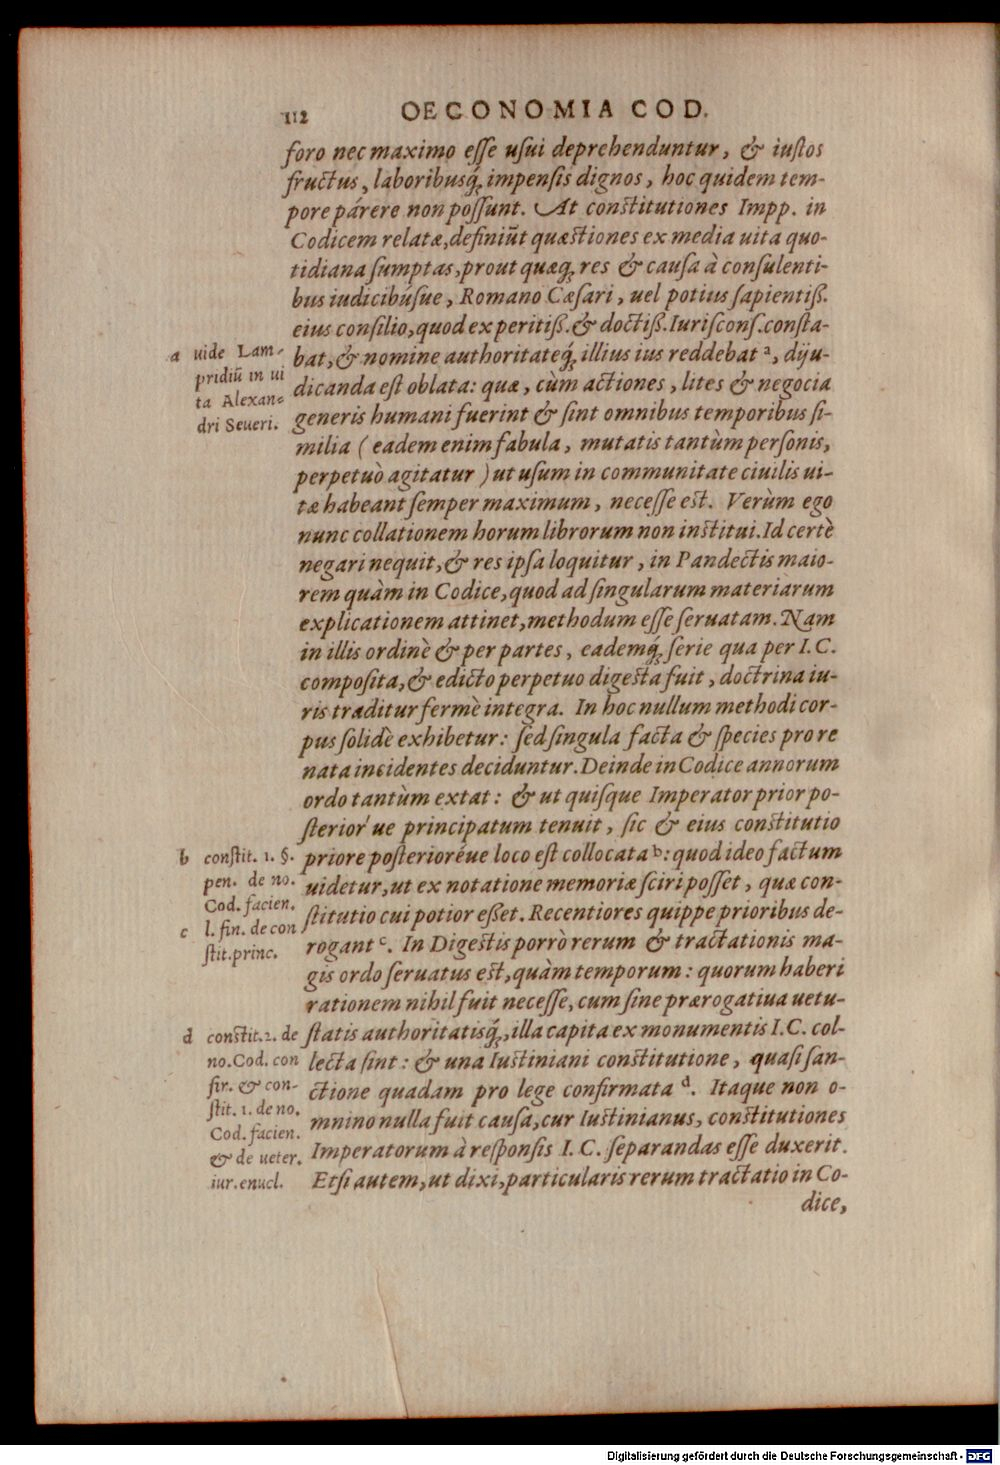 112 OECONOMIA COD.
foro nec maximo eſſe uſui deprehenduntur, & iuſtos
fructus, laboribusq́; impenſis dignos, hoc quidem tem-
pore párere non poſſunt. At conſtitutiones Impp. in
Codicem relatæ, definiũt quæſtiones ex media uita quo-
tidiana ſumptas, prout quæq; res & cauſa à conſulenti-
bus iudicibúſue, Romano Cæſari, uel potius ſapientiß.
eius conſilio, quod ex peritiß. & doctiß. Iuriſconſ. conſta-
bat, & nomine authoritateq́; illius ius reddebat a, diju-
dicanda eſt oblata: quæ, cùm actiones, lites & negocia
generis humani fuerint & ſint omnibus temporibus ſi-
milia (eadem enim fabula, mutatis tantùm perſonis,
perpetuò agitatur) ut uſum in communitate ciuilis ui-
tæ habeant ſemper maximum, neceſſe eſt. Verùm ego
nunc collationem horum librorum non inſtitui. Id certè
negari nequit, & res ipſa loquitur, in Pandectis maio-
rem quàm in Codice, quod ad ſingularum materiarum
explicationem attinet, methodum eſſe ſeruatam. Nam
in illis ordinè & per partes, eademq́; ſerie qua per I.C.
compoſita, & edicto perpetuo digeſta fuit, doctrina iu-
ris traditur fermè integra. In hoc nullum methodi cor-
pus ſolidè exhibetur: ſed ſingula facta & ſpecies pro re
nata incidentes deciduntur. Deinde in Codice annorum
ordo tantùm extat: & ut quiſque Imperator prior po-
ſterior'ue principatum tenuit, ſic & eius conſtitutio
priore poſterioréue loco eſt collocata b: quod ideo factum
uidetur, ut ex notatione memoriæ ſciri poſſet, quæ con-
ſtitutio cui potior eßet. Recentiores quippe prioribus de-
rogant c. In Digeſtis porrò rerum & tractationis ma-
gis ordo ſeruatus eſt, quàm temporum: quorum haberi
rationem nihil fuit neceſſe, cum ſine prærogatiua uetu-
ſtatis authoritatisq́;, illa capita ex monumentis I.C. col-
lecta ſint: & una Iuſtiniani conſtitutione, quaſi ſan-
ctione quadam pro lege confirmata d. Itaque non o-
mnino nulla fuit cauſa, cur Iuſtinianus, conſtitutiones
Imperatorum à reſponſis I.C. ſeparandas eſſe duxerit.
Etſi autem, ut dixi, particularis rerum tractatio in Co-
dice,
a uide Lam-
pridiũ in ui
ta Alexan-
dri Seueri.
b conſtit. 1. §.
pen. de no.
Cod. facien.
c l. fin. de con
ſtit. princ.
d conſtit. 2. de
no. Cod. con
fir. & con-
ſtit. 1. de no.
Cod. facien.
& de ueter.
iur. enucl.
Digitalisierung gefördert durch die Deutsche Forschungsgemeinschaft - DFG